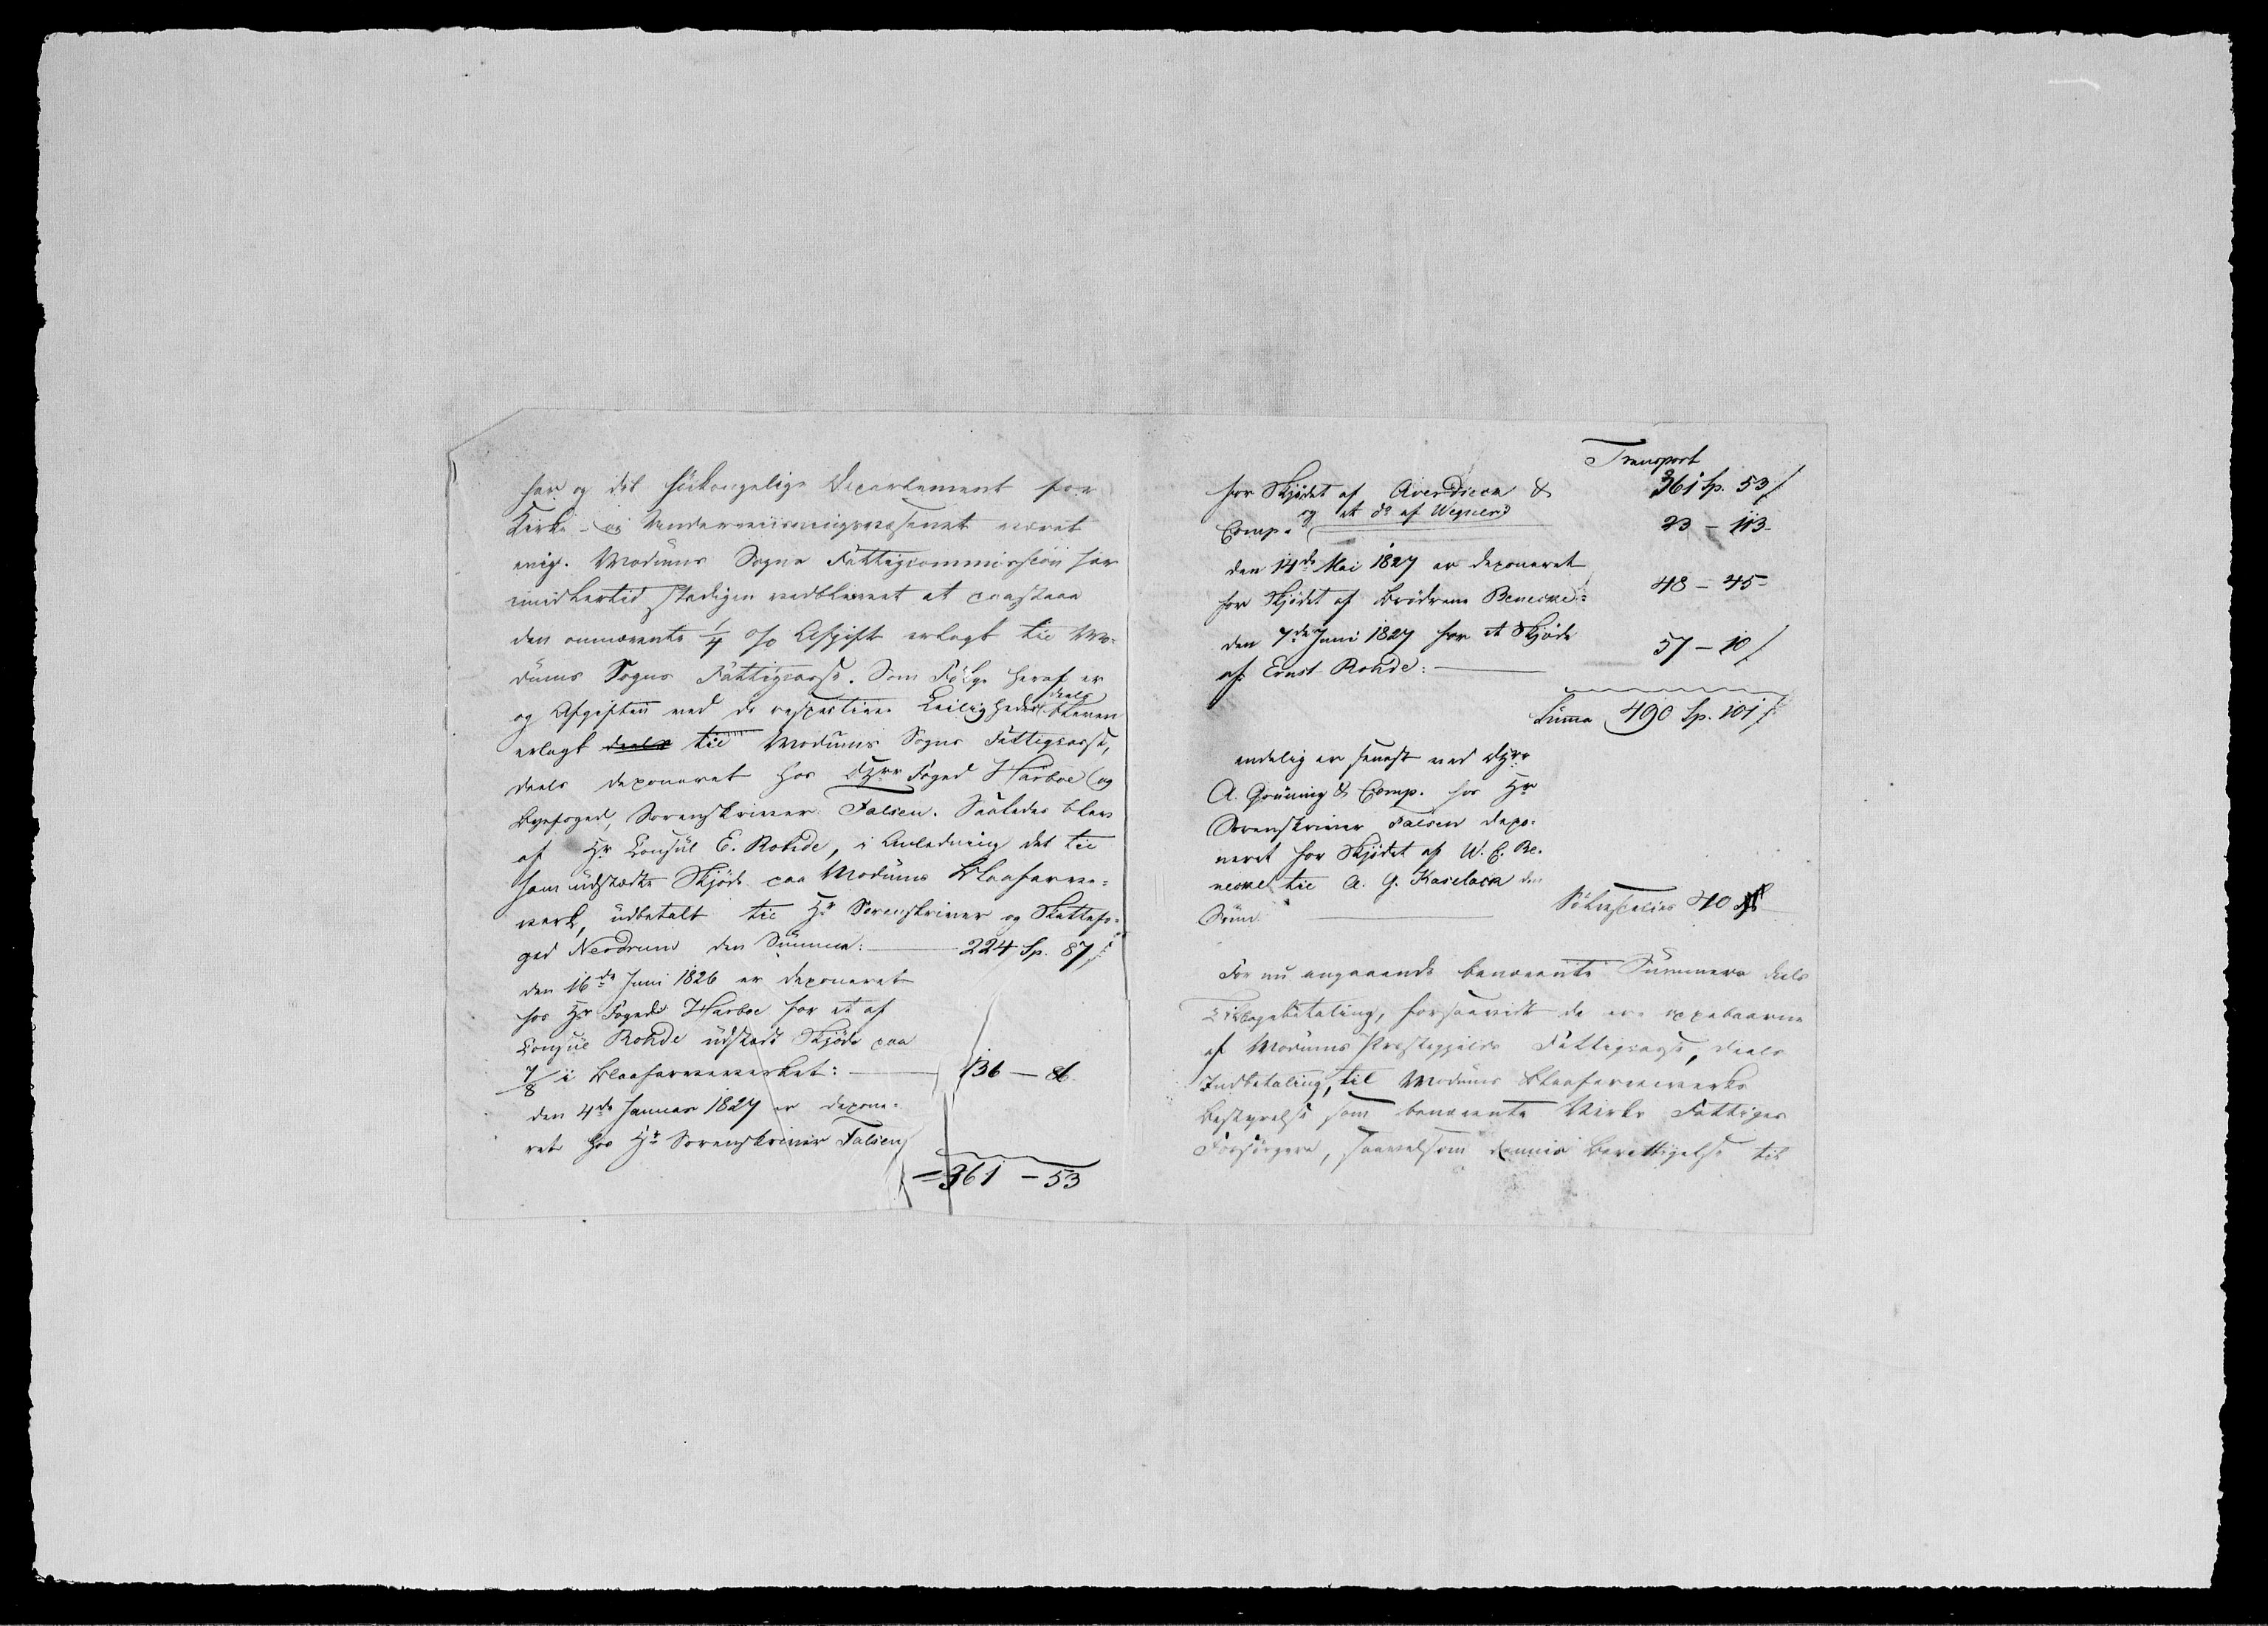 har og det höikongelige Departement for
Kirke- og Underviisningsvæsenet været
enig. Modums Sogns Fattigcommission har
imidlertid stadigen vedblevet at paastaae
den omnævnte 1/4 % Afgift erlagt til Mo-
dums Sogns Fattigcasse. Som Fölge heraf er
og Afgiften ved de respective Leiligheder deels bleven
erlagt deels til Modums Sogns Fattigcasse,
deels deponeret hos Hrr Foged Harboe og
Byefoged, Sorenskriver Falsen. Saaledes blev
af Hr Consul E. Rohde, i Anledning det til
ham udstædte Skjöde paa Modums Blaafarve-
værk, udbetalt til Hr Sorenskriver og Skattefo-
ged Neodrum den Summa: 224 Sp. 87 ß
den 16de Juni 1826 er deponeret
hos Hr Foged Harboe for et af
Consul Rohde udstædt Skjöde paa
7/8 i Blaafarveværket: 136 - 86.
den 4de Januar 1827 er depone-
ret hos Hr Sorenskriver Falsen
= 361 - 53
Transport
for Skjödet af Averdieck & 361 Sp. 53 ß
Comp. og et do af Wegner 23 - 113
den 14de Mai 1827 er deponeret
for Skjödet af Brödrene Benecke: 48 - 45
den 7de Juni 1827 for et Skjöde
af Ernst Rohde: 57 - 10 ß
Summa 490 Sp. 101 ß
endelig er senest ved Hrr
A. Grüning & Comp. hos Hr
Sorenskriver Falsen depo-
neret for Skjödet af W. E. Be-
necke til A. G. Kaselack den
Sum Sölvspecies 40
For nu angaaende benævnte Summers deels
Tilbagebetaling, forsaavidt de ere oppebaarne
af Modums Præstegjelds Fattigcasse, deels
Indbetaling, til Modums Blaafarveværks
Bestyrelse som benævnte Værks Fattiges
Forsörgere, saavelsom dennes Berettigelse til